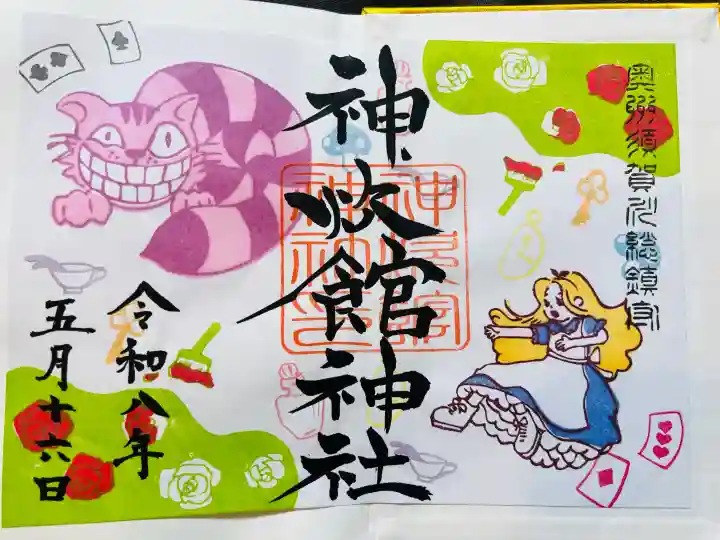 奥州須賀川総鎮守
神炊館神社
令和八年
五月十六日